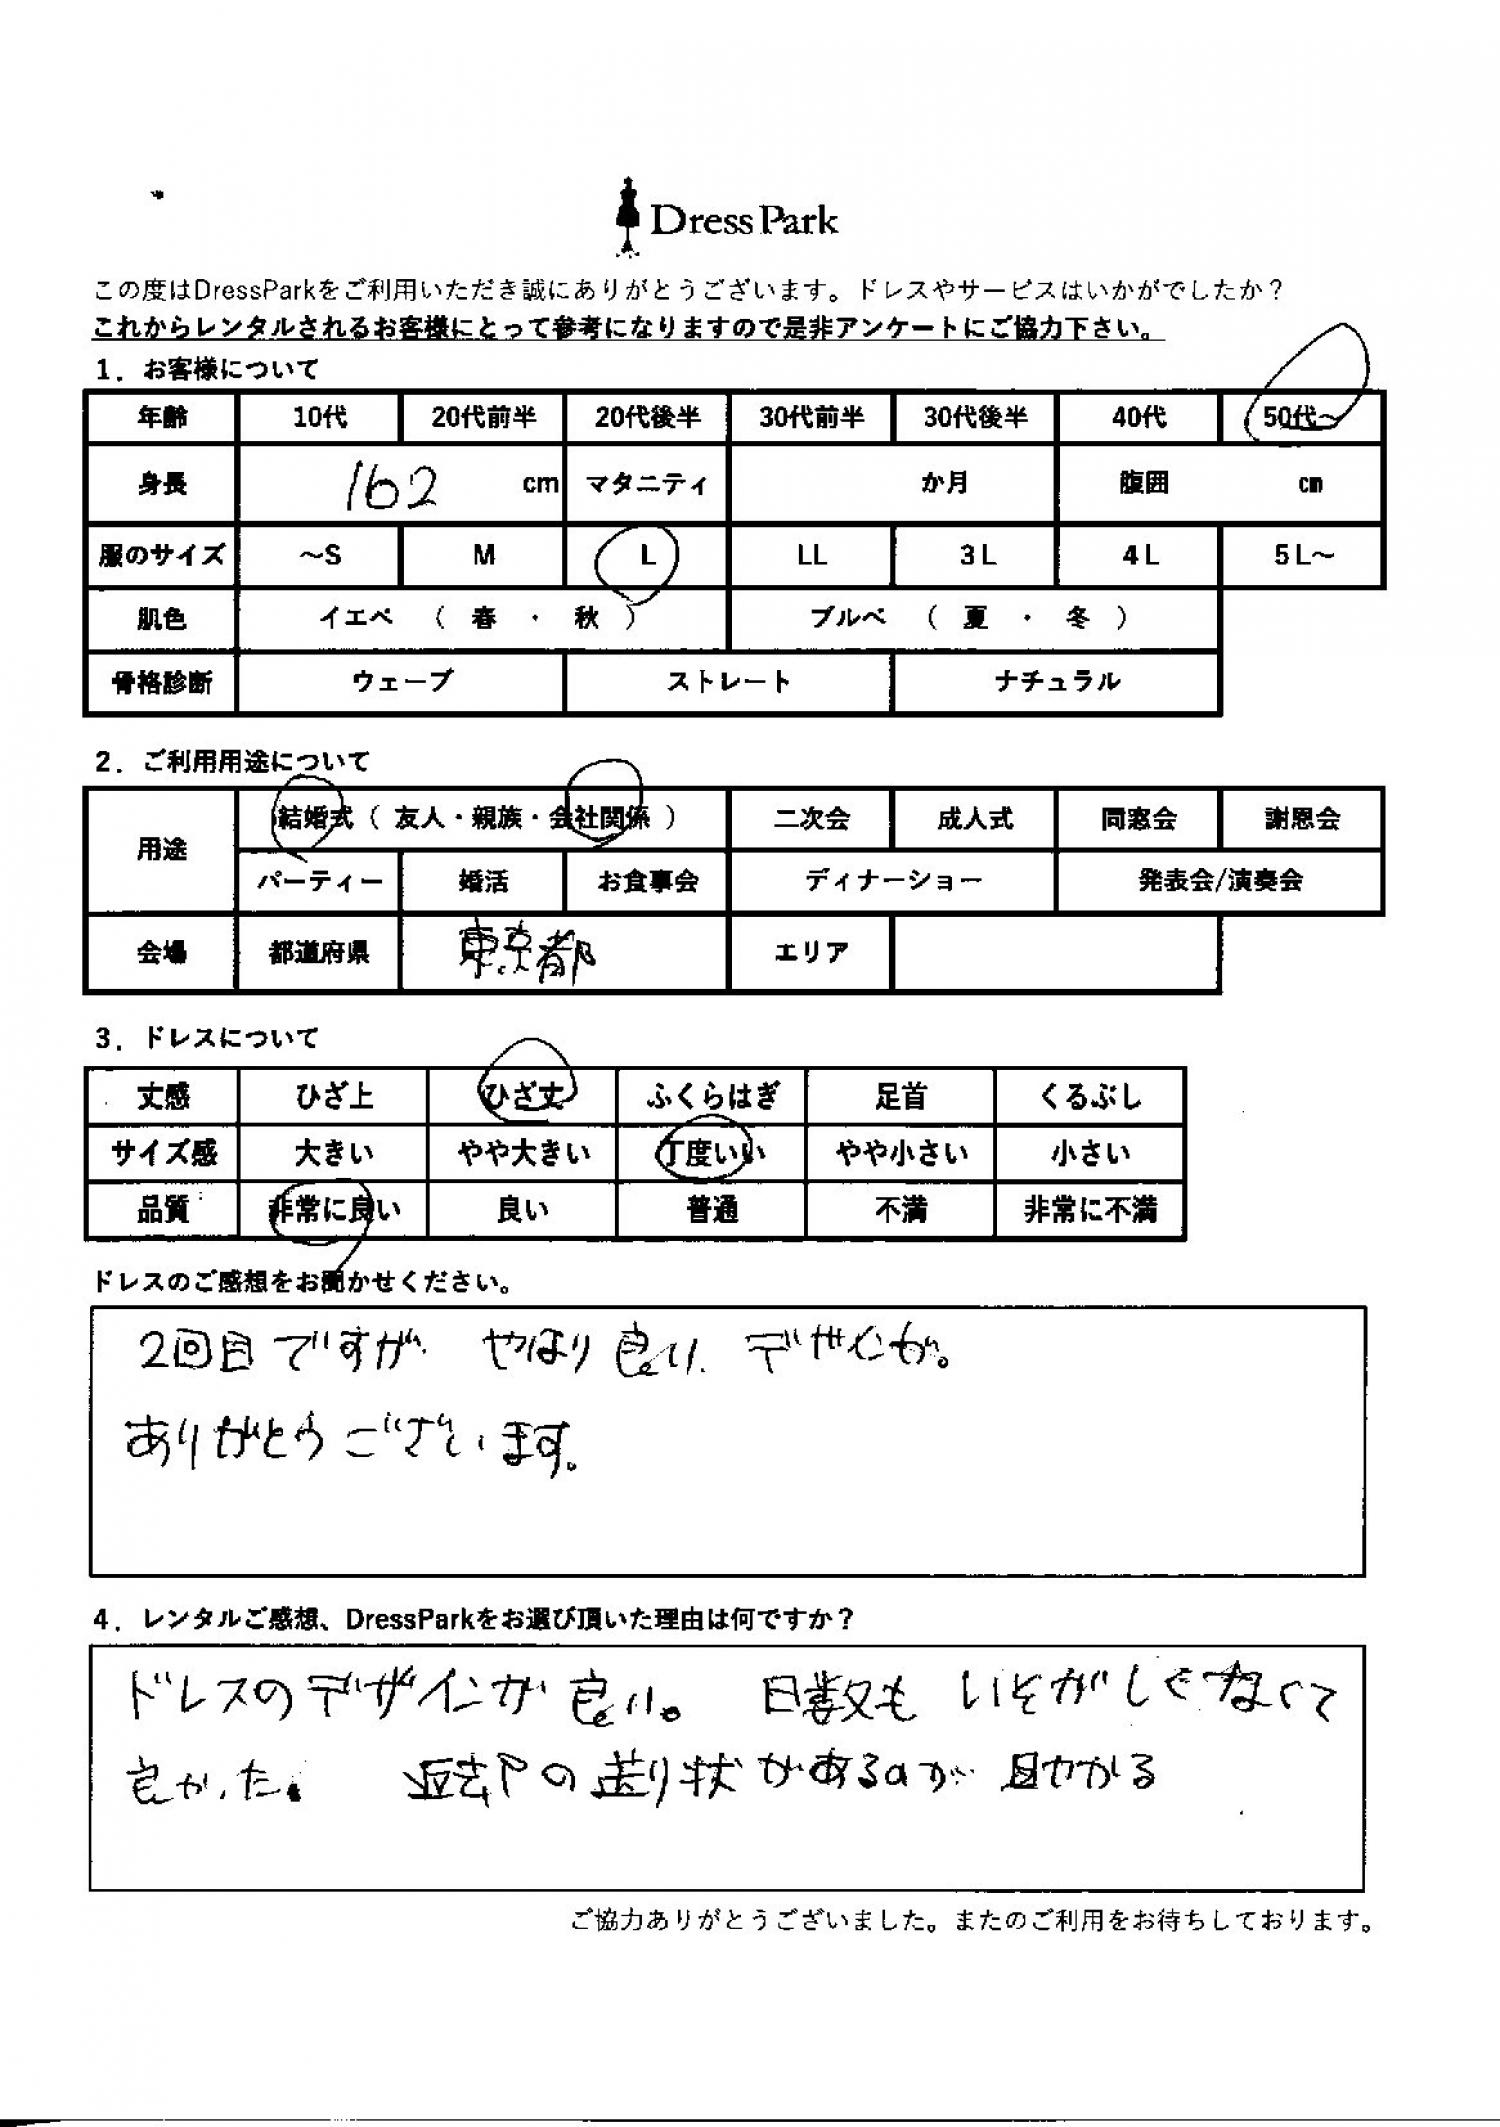 Dress Park
この度はDressParkをご利用いただき誠にありがとうございます。ドレスやサービスはいかがでしたか？
これからレンタルされるお客様にとって参考になりますので是非アンケートにご協力下さい。
1．お客様について
年齢 10代 20代前半 20代後半 30代前半 30代後半 40代 50代～
身長 162 cm マタニティ か月 腹囲 cm
服のサイズ ～S M L LL 3L 4L 5L～
肌色 イエベ （ 春 ・ 秋 ） ブルベ （ 夏 ・ 冬 ）
骨格診断 ウェーブ ストレート ナチュラル
2．ご利用用途について
用途 結婚式（ 友人・親族・会社関係 ） 二次会 成人式 同窓会 謝恩会
パーティー 婚活 お食事会 ディナーショー 発表会/演奏会
会場 都道府県 東京都 エリア
3．ドレスについて
丈感 ひざ上 ひざ丈 ふくらはぎ 足首 くるぶし
サイズ感 大きい やや大きい 丁度いい やや小さい 小さい
品質 非常に良い 良い 普通 不満 非常に不満
ドレスのご感想をお聞かせください。
2回目ですが やはり良い デザインが。
ありがとうございます。
4．レンタルご感想、DressParkをお選び頂いた理由は何ですか？
ドレスのデザインが良い。 日数も いそがしくなくて
良かった。 返却の送り状があるのが 助かる
ご協力ありがとうございました。またのご利用をお待ちしております。